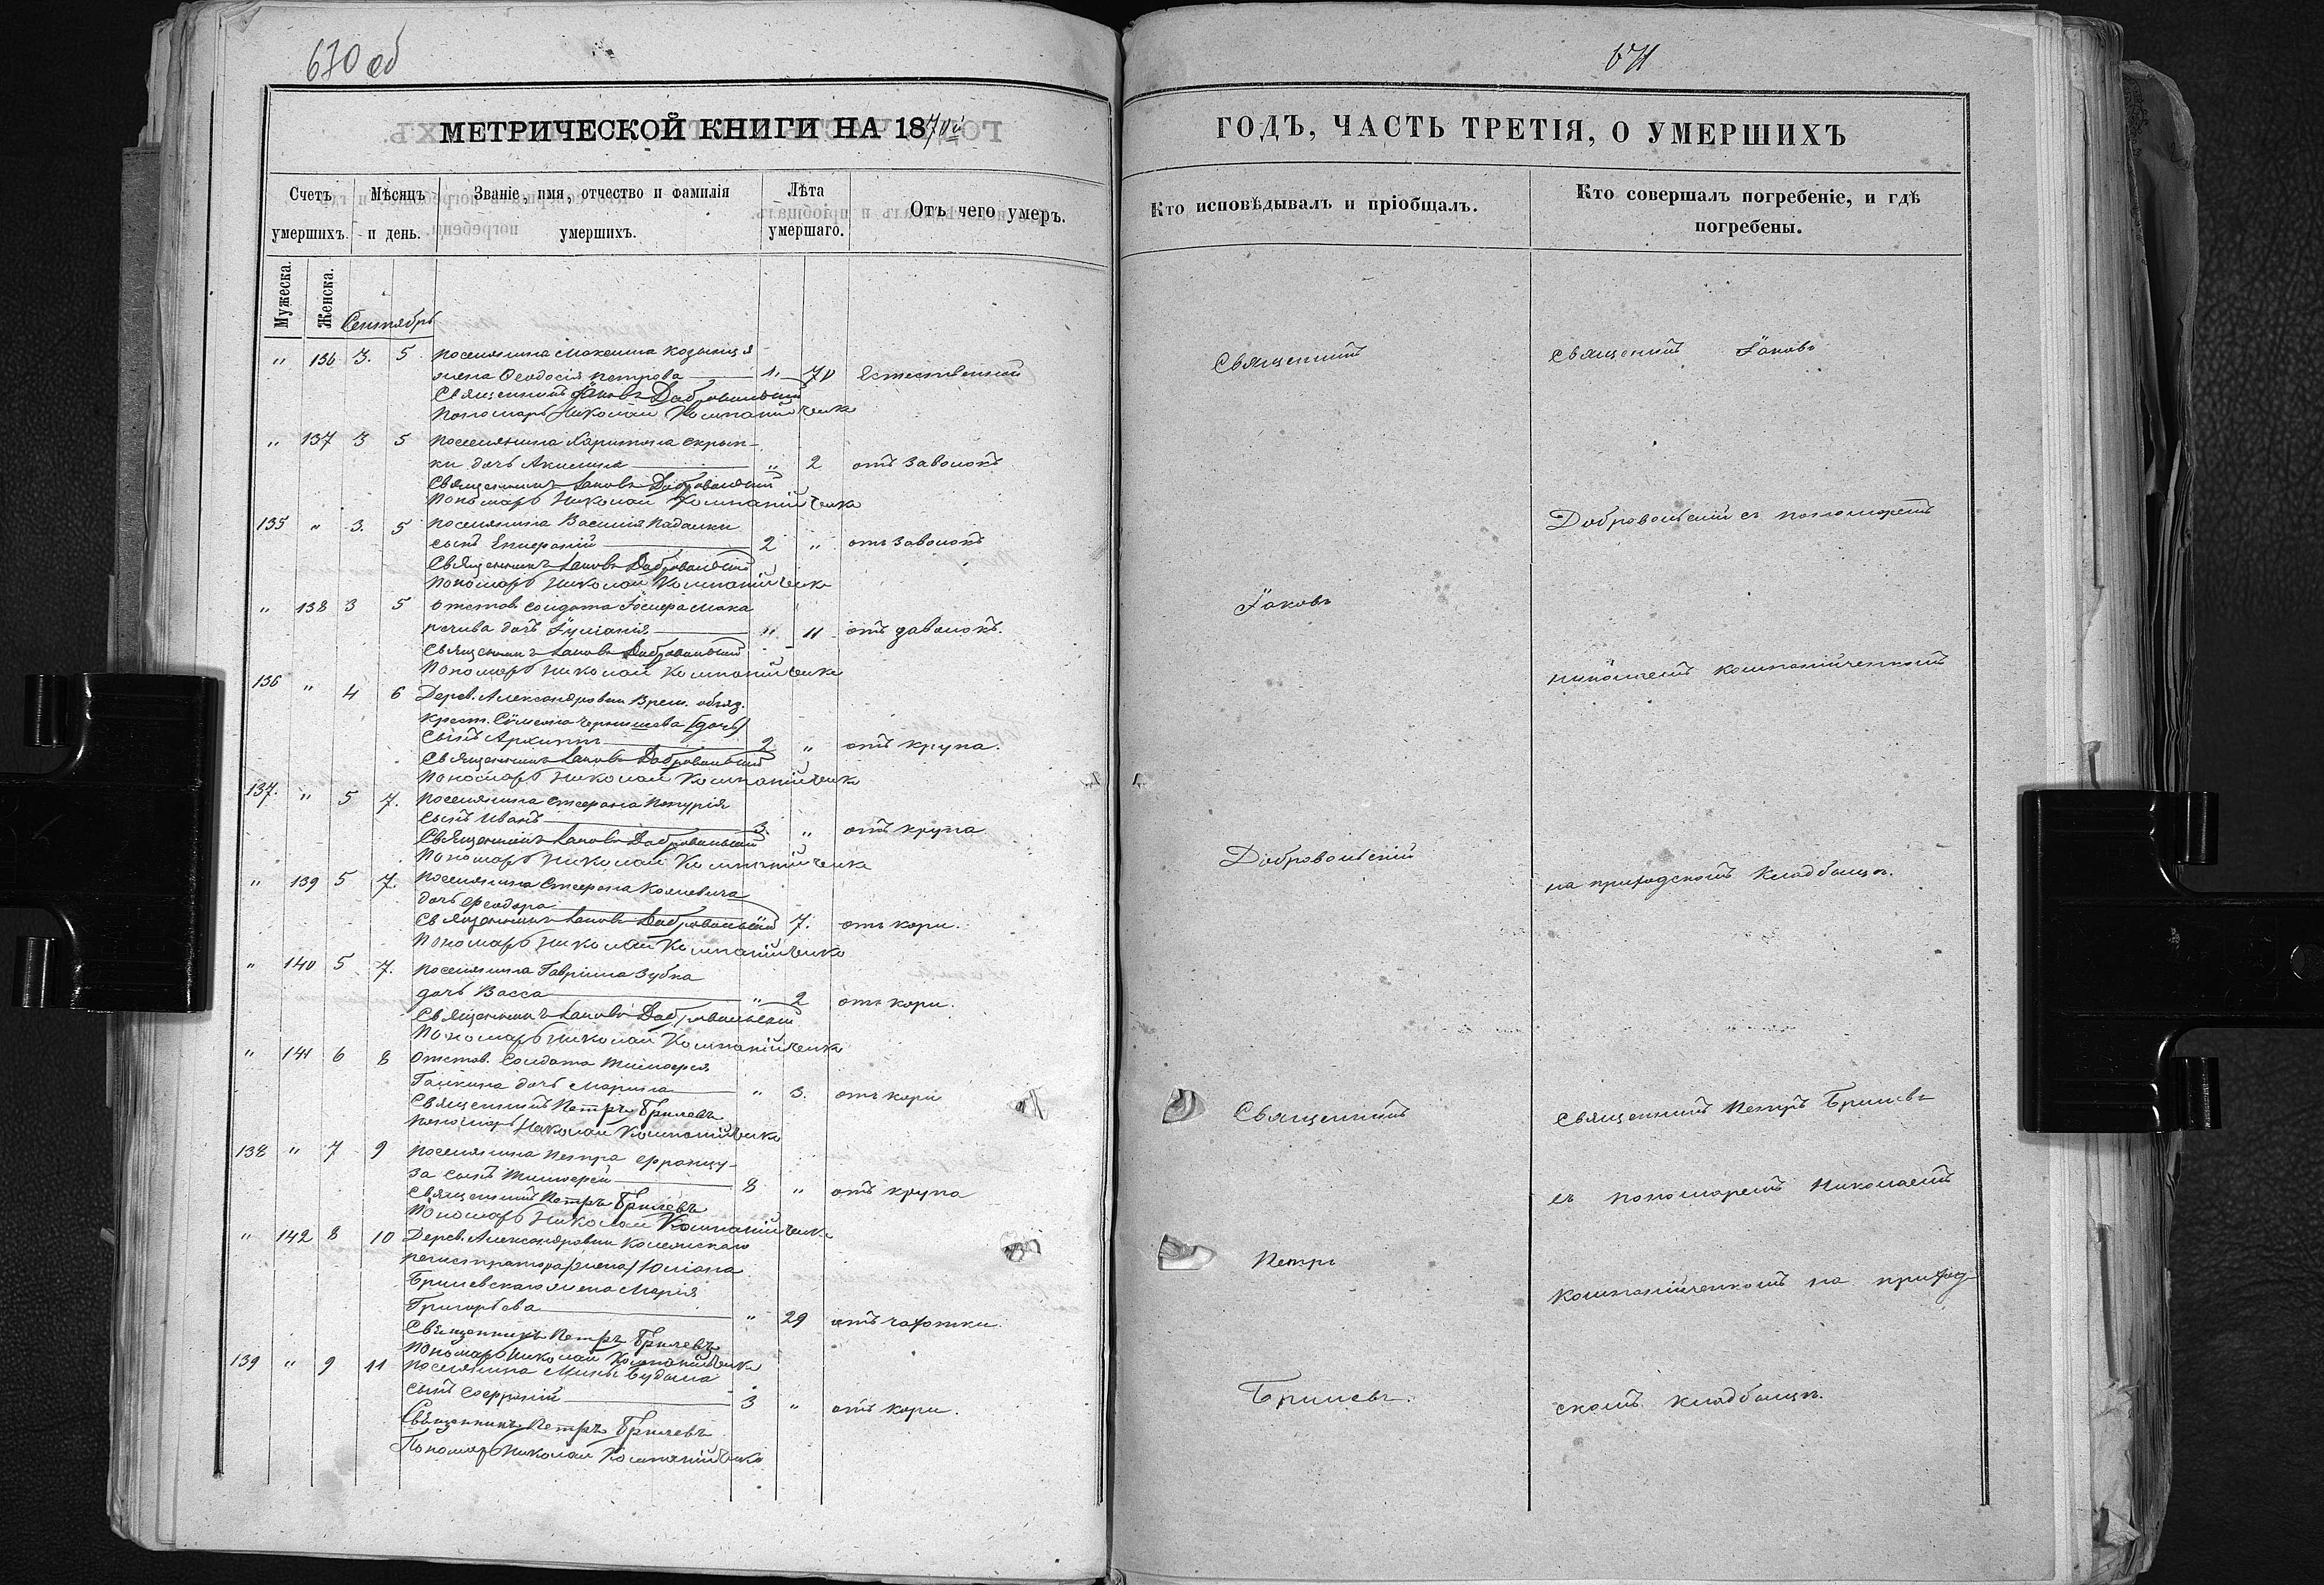 670 об
МЕТРИЧЕСКОЙ КНИГИ НА 1870й
Счетъ умершихъ.
Мѣсяцъ и день.
Званіе, имя, отчество и фамилія умершихъ.
Лѣта умершаго.
Отъ чего умеръ.
Мужеска.
Женска.
Сентябрь
" 136 3. 5 Поселянина Максима
жена Феодосія Петрова 70 Естественной
Священникъ Іаковъ Добровольскій
Пономарь Николай Компанійченко
" 137 3 5 Поселянина Харитона Скрып-
ки дочь Акилина " 2 отъ заволокъ
Священникъ Іаковъ Добровольскій
Пономарь Николай Компанійченко
135 " 3. 5 Поселянина Василія Падалки
сынъ 2 " отъ заволокъ
Священникъ Іаковъ Добровольскій
Пономарь Николай Компанійченко
" 138 3 5 Отстав. солдата Мака
дочь Іуліанія " 11 отъ заволокъ.
Священникъ Іаковъ Добровольскій
Пономарь Николай Компанійченко
136 " 4 6 Дерев. Александровки Врем. обяз.
крест. Чернышева (дочь)
сынъ Архипъ 2 " отъ крупа.
Священникъ Іаковъ Добровольскій
Пономарь Николай Компанійченко
137. " 5 7. Поселянина Стефана
сынъ Иванъ 3. " отъ крупа
Священникъ Іаковъ Добровольскій
Пономарь Николай Компанійченко
" 139 5 7. Поселянина Стефана
дочь Феодора 7. отъ кори.
Священникъ Іаковъ Добровольскій
Пономарь Николай Компанійченко
" 140 5 7. Поселянина Гавріила Зубка
дочь Васса " 2 отъ кори.
Священникъ Іаковъ Добровольскій
Пономарь Николай Компанійченко
" 141 6 8 Отстав. Солдата Тимофея
Галкина дочь Марина " 3. отъ кори
Священникъ Петръ Брилевъ
Пономарь Николай Компанійченко
138 " 7 9 Поселянина Петра Францу-
за сынъ Тимофей 8 " отъ крупа
Священникъ Петръ Брилевъ
Пономарь Николай Компанійченко
" 142 8 10 Дерев. Александровки Колежскаго
регистратора (жена) Юліана
Брилевскаго жена Марія
Григорьева " 29 отъ чахотки.
Священникъ Петръ Брилевъ
Пономарь Николай Компанійченко
139 " 9 11 Поселянина Мины
сынъ Софроній 3 " отъ кори.
Священникъ Петръ Брилевъ
Пономарь Николай Компанійченко
671
ГОДЪ, ЧАСТЬ ТРЕТІЯ, О УМЕРШИХЪ
Кто исповѣдывалъ и пріобщалъ.
Кто совершалъ погребеніе, и гдѣ
погребены.
Священникъ
Іаковъ
Добровольскій
Священникъ
Петръ
Брилевъ.
Священникъ Іаковъ
Добровольскій съ пономаремъ
Николаемъ Компанійченкомъ
на приходскомъ кладбищѣ.
Священникъ Петръ Брилевъ
съ пономаремъ Николаемъ
Компанійченкомъ на приход-
скомъ кладбищѣ.